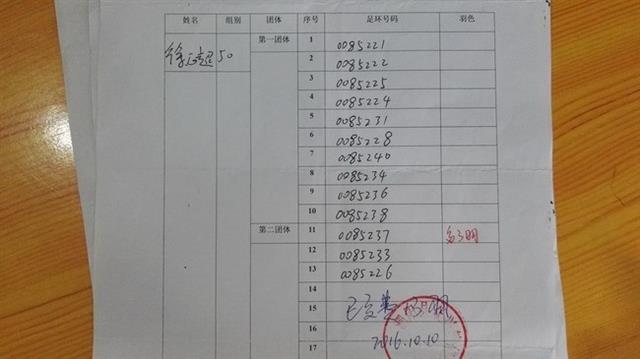 姓名 组别 团体 序号 足环号码 羽色
徐 超 50 第一团体 1 0085221
2 0085222
3 0085225
4 0085224
5 0085231
6 0085228
7 0085240
8 0085234
9 0085236
10 0085238
第二团体 11 0085237
12 0085233
13 0085226
14
15
16 2016.10.10
17